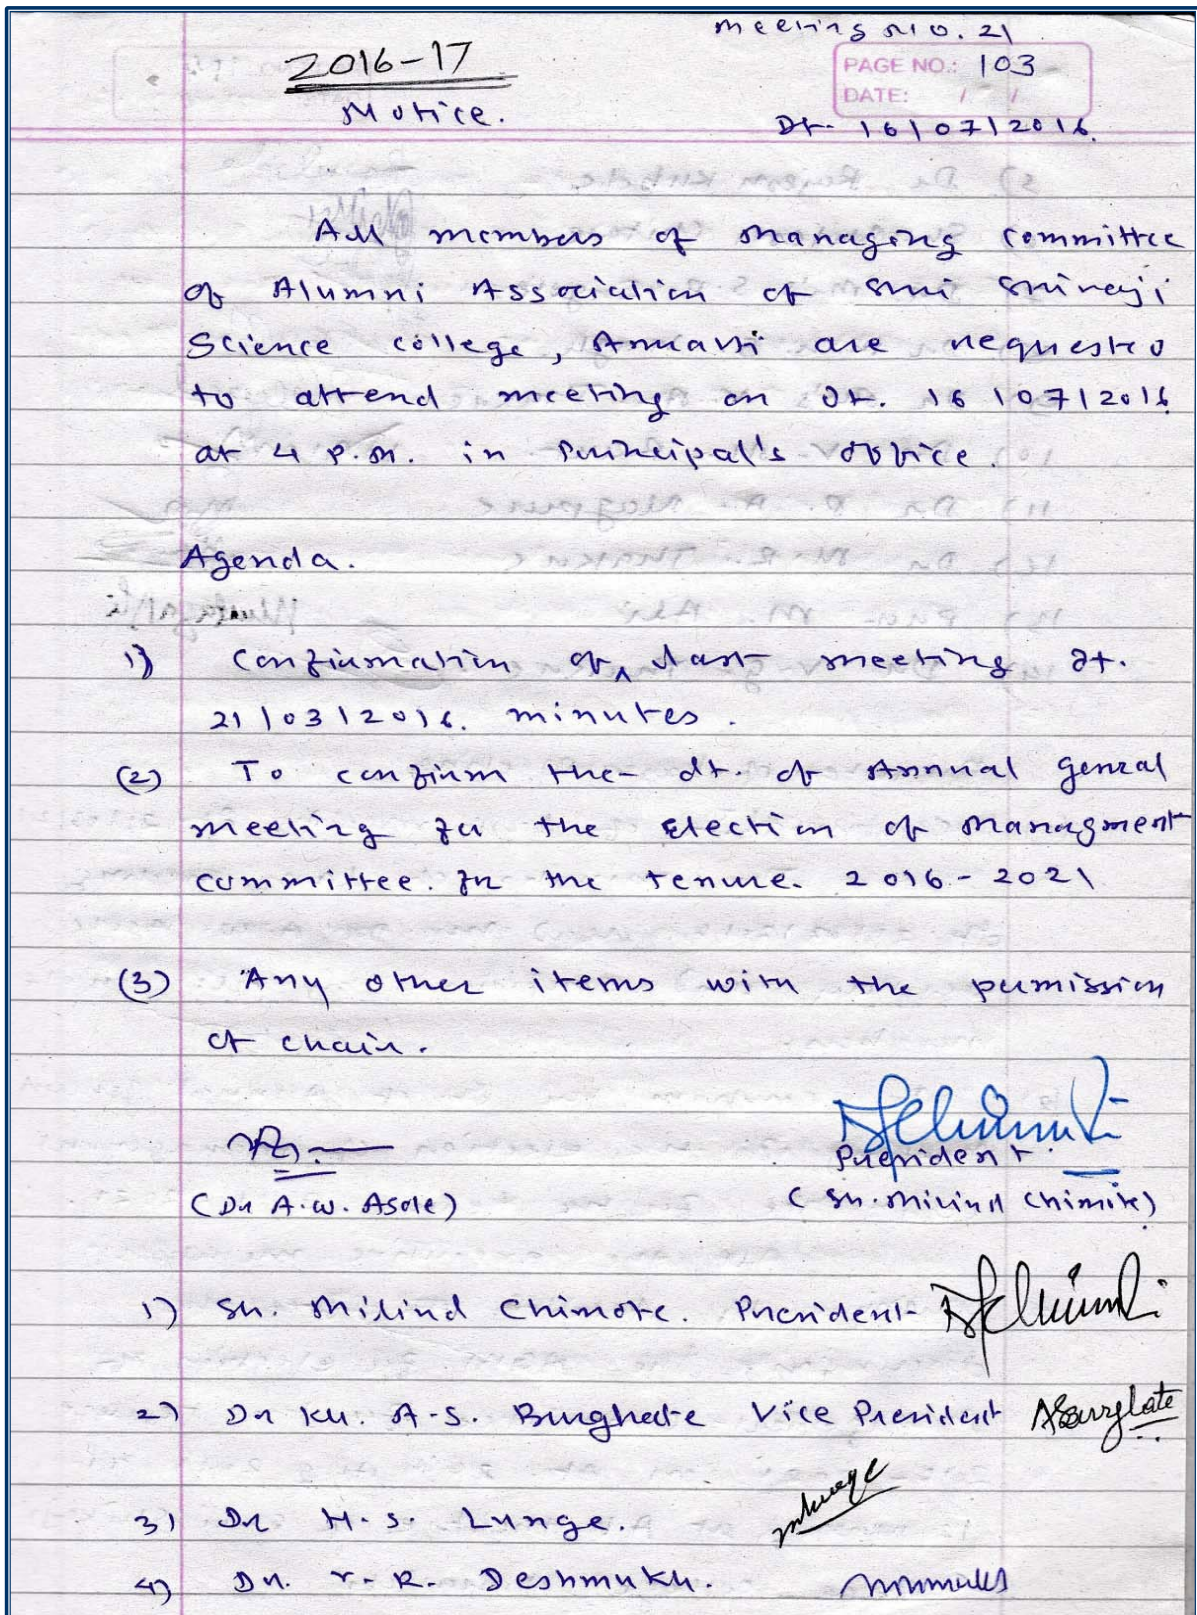 meeting No. 21
2016-17
PAGE NO.: 103
DATE: / /
Notice.
Dt. 16/07/2016.
All members of managing committee
of Alumni Association of Shri Shivaji
Science college, Amravti are requested
to attend meeting on Dt. 16/07/2016
at 4 p.m. in Principal's office.
Agenda.
1) Confirmation of ^ last meeting dt.
21/03/2016. minutes.
(2) To confirm the dt. of Annual Genral
meeting for the Election of Managment
committee. for the tenure. 2016-2021
(3) Any other items with the permission
of chair.
President.
(Dr A.W. Asole) (Sh. Milind Chimote)
1) Sh. Milind Chimote. President
2) Dr Ku. A.S. Burghate Vice President ASBurghate
3) Dr H.S. Lunge.
4) Dr. Y.R. Deshmukh.